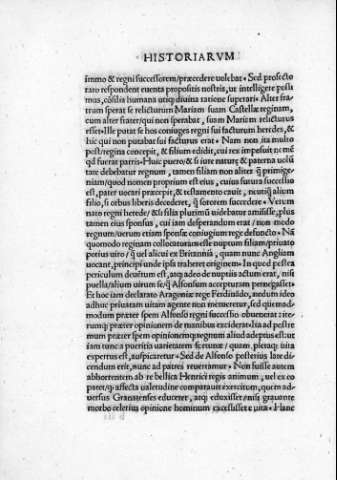 HISTORIARVM
immo & regni successorem/præcedere volebat • Sed profecto
raro respondent euenta propositis nostris, ut intelligere possi
mus, cõsilia humana utiq; diuina ratione superari • Alter fra
trum sperat se relicturum Mariam suam Castellæ reginam,
cum alter frater/qui non sperabat, suam Mariam relicturus
esset • Ille putat se hos coniuges regni sui facturum heredes, &
hic qui non putabat sui facturus erat • Nam non ita multo
post/regina concepit, & filium edidit, cui rex
qd fuerat patris • Huic puero/& si iure naturæ & paterna volũ
tate debebatur regnum, tamen filiam non aliter q̃ primige-
niam/quod nomen proprium est eius, cuius futura successio
est, pater uocari præcepit, & testamento cauit, neutiq̃ alium
filio, si orbus liberis decederet, q̃ sororem succedere • Verum
nato regni herede/& si filia plurimũ uidebatur amisisse, plus
tamen eius sponsus, cui iam desperandum erat/non modo
regnum/uerum etiam sponsæ coniugium rege defuncto • Nã
quomodo reginam collocaturam esse nuptum filiam/priuato
potius uiro/q̃ uel alicui ex Britannia, quam nunc Angliam
uocant, principi/unde ipsa traheret originem • In quod pestea
periculum deuẽtum est, atq; adeo de nuptiis actum erat, nisi
puella/alium uirum se/q̃ Alfonsum accepturam pernegasset •
Et hoc iam declarato Aragoniæ rege Ferdinãdo, nedum ideo
adhuc priuatum uitam agente non minueretur, sed quemad-
modum præter spem Alfonso regni successio obuenerat iite-
rumq; præter opinionem de manibus exciderat • ita ad postre
mum præter spem opinionemq; regnum aliud adeptus est: ut
iam tunc a pueritia uarietatem fortunæ/quam, pleraq; uita
expertus est, auspicaretur • Sed de Alfonso posterius late di-
cendum erit, nunc ad patrem reuertamur • Non fuisse autem
abhorrentem ab re bellica Henrici regis animum, uel ex eo
patet/q; affecta ualetudine comparauit exercitum, quem ad-
uersus Granatenses educeret, atq; eduxisset/nisi grauante
morbo celerius opinione hominum excessisset e uita • Hanc